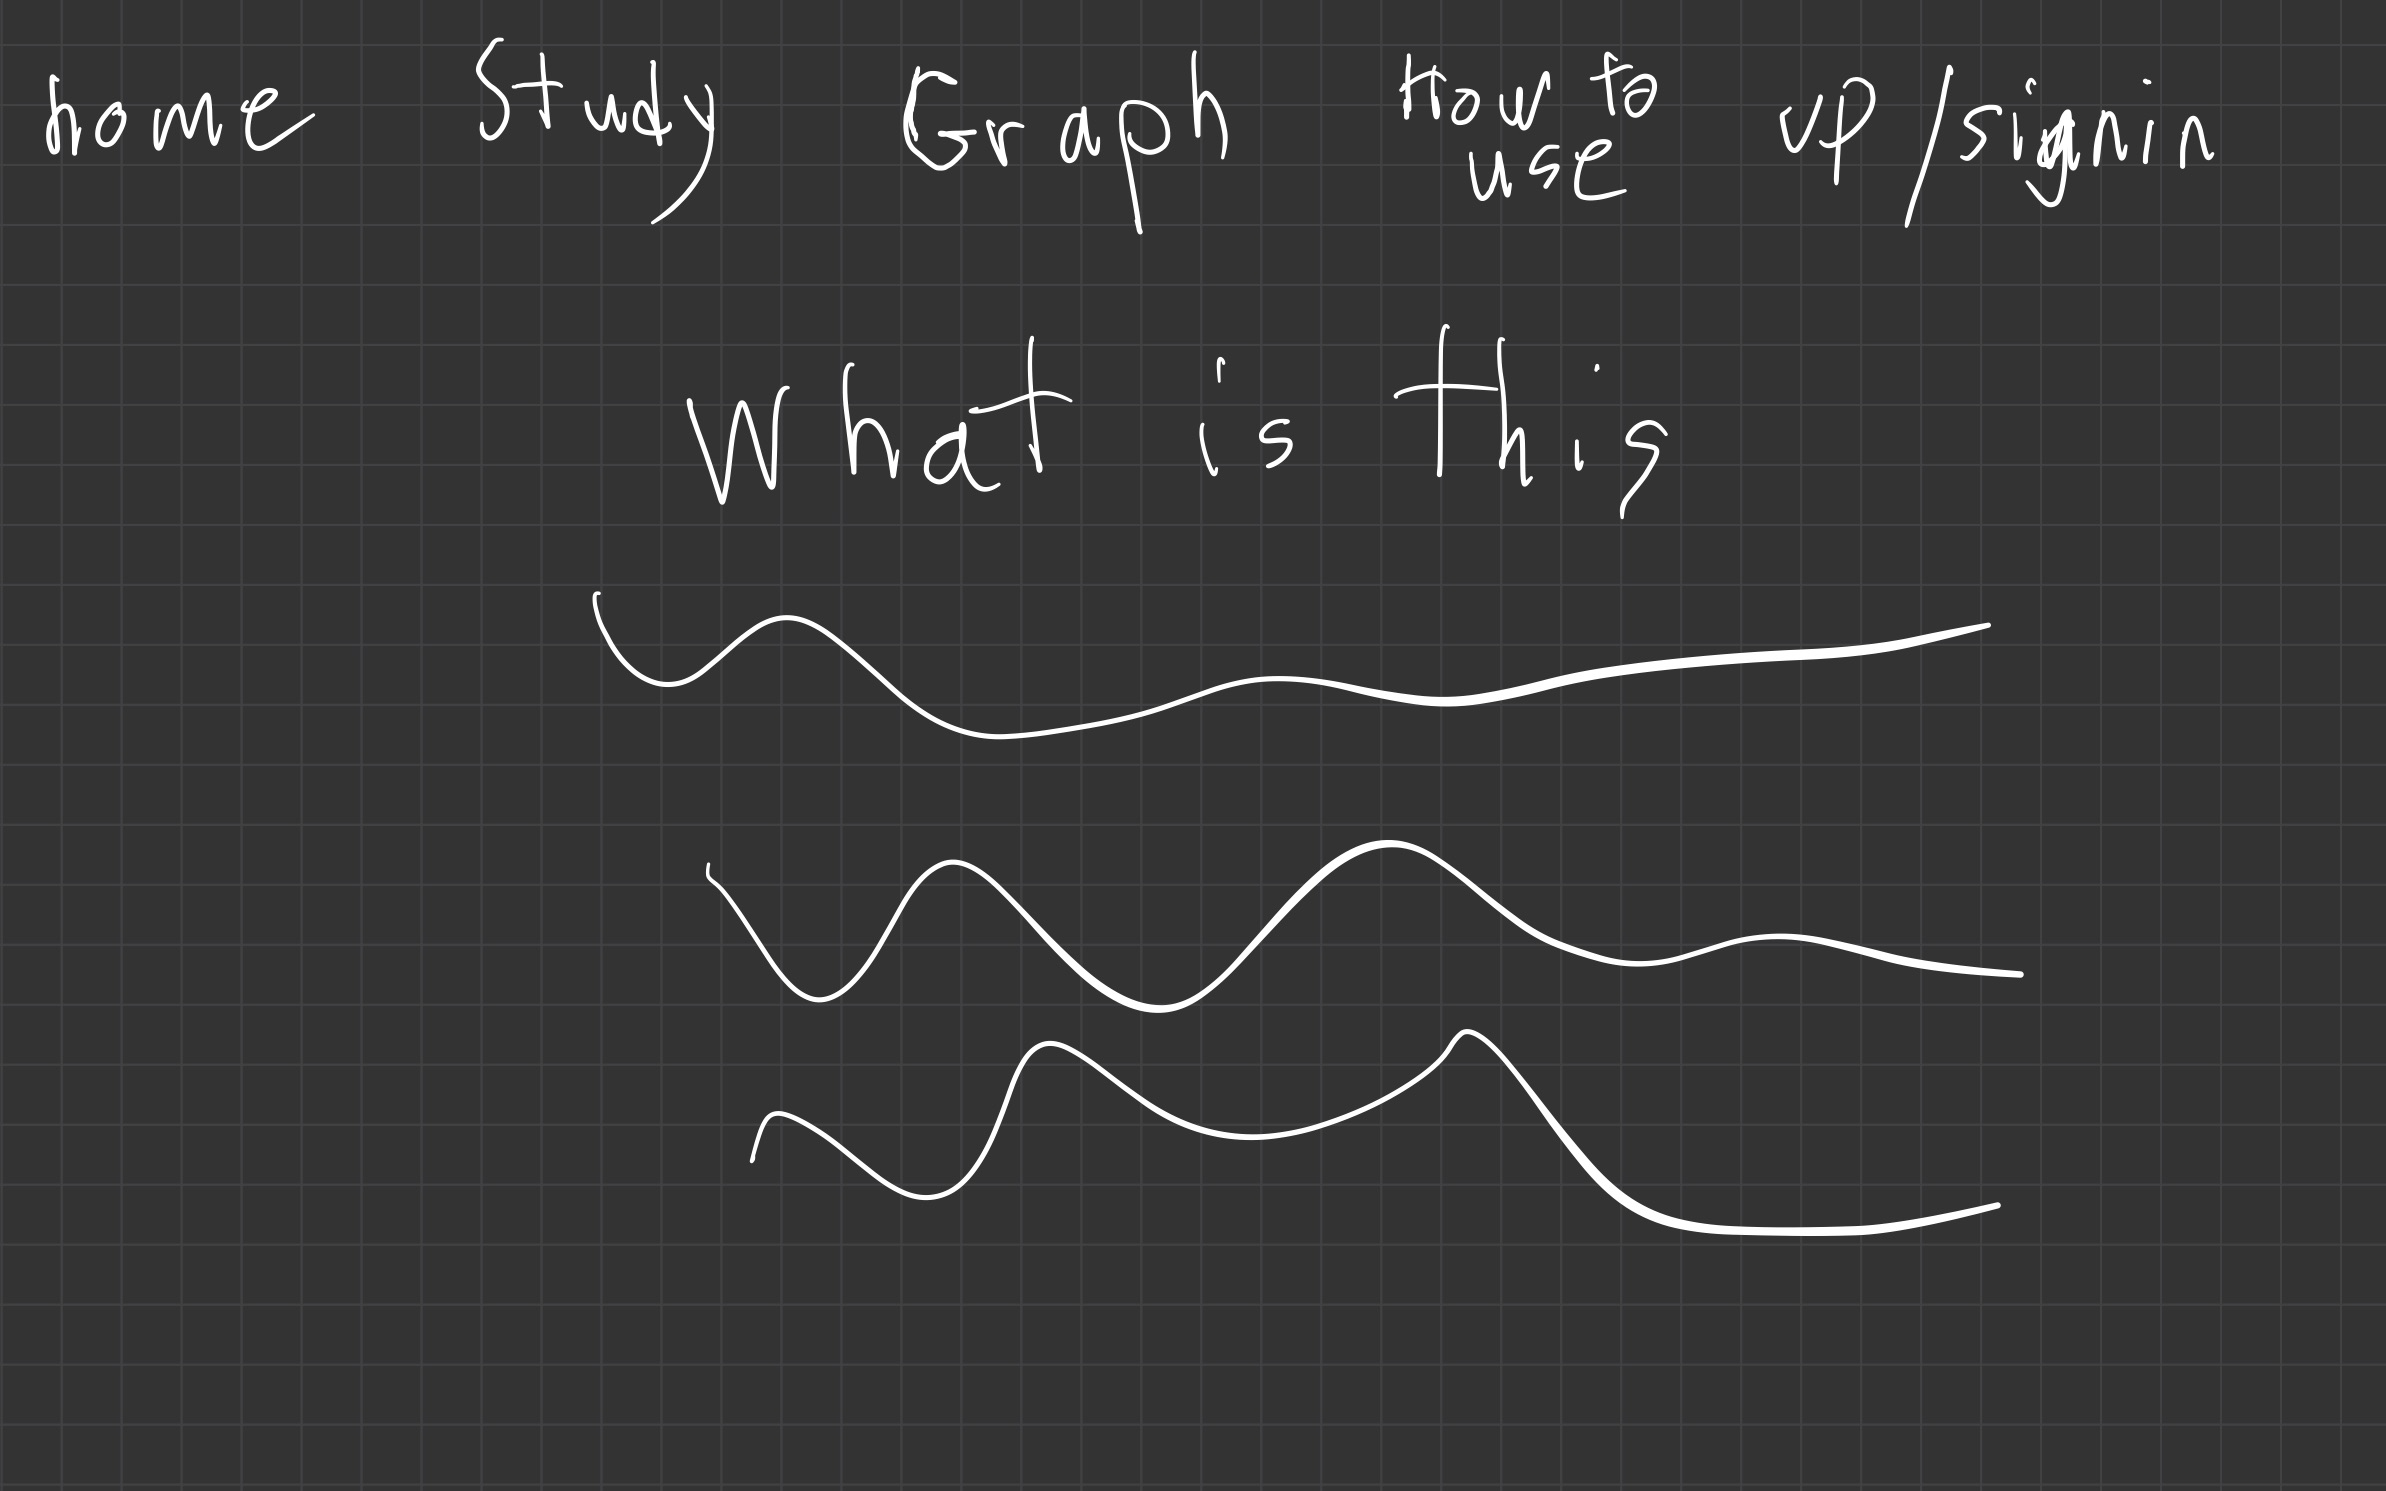 home Study Graph How to use up/signin
What is this